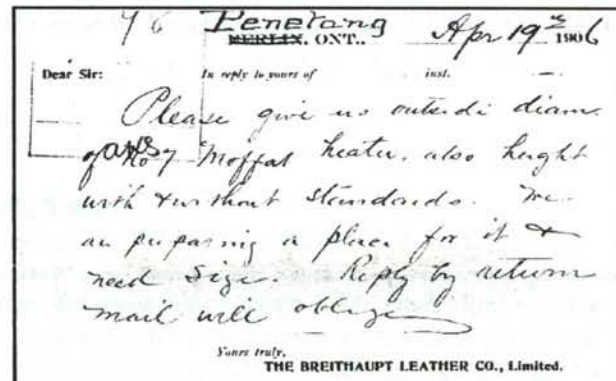 96 Penetang
BERLIN, ONT.. Apr 19th 1906
Dear Sir: In reply to yours of inst.
Please give us outside diam.
of No 7 Moffat heater, also height
with & without standards. We
are preparing a place for it &
need size. Reply by return
mail will oblige
Yours truly,
THE BREITHAUPT LEATHER CO., Limited.